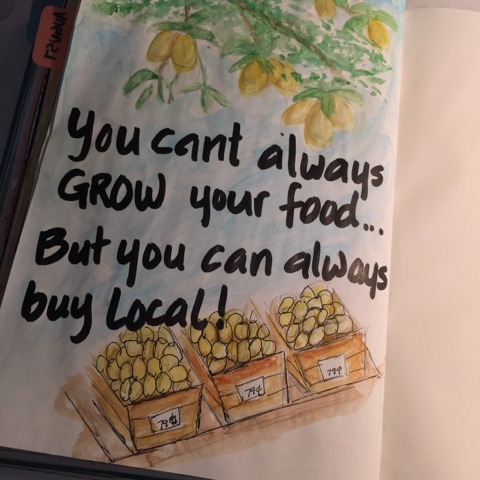 You cant always
GROW your food...
But you can always
buy Local!
79¢
79¢
79¢